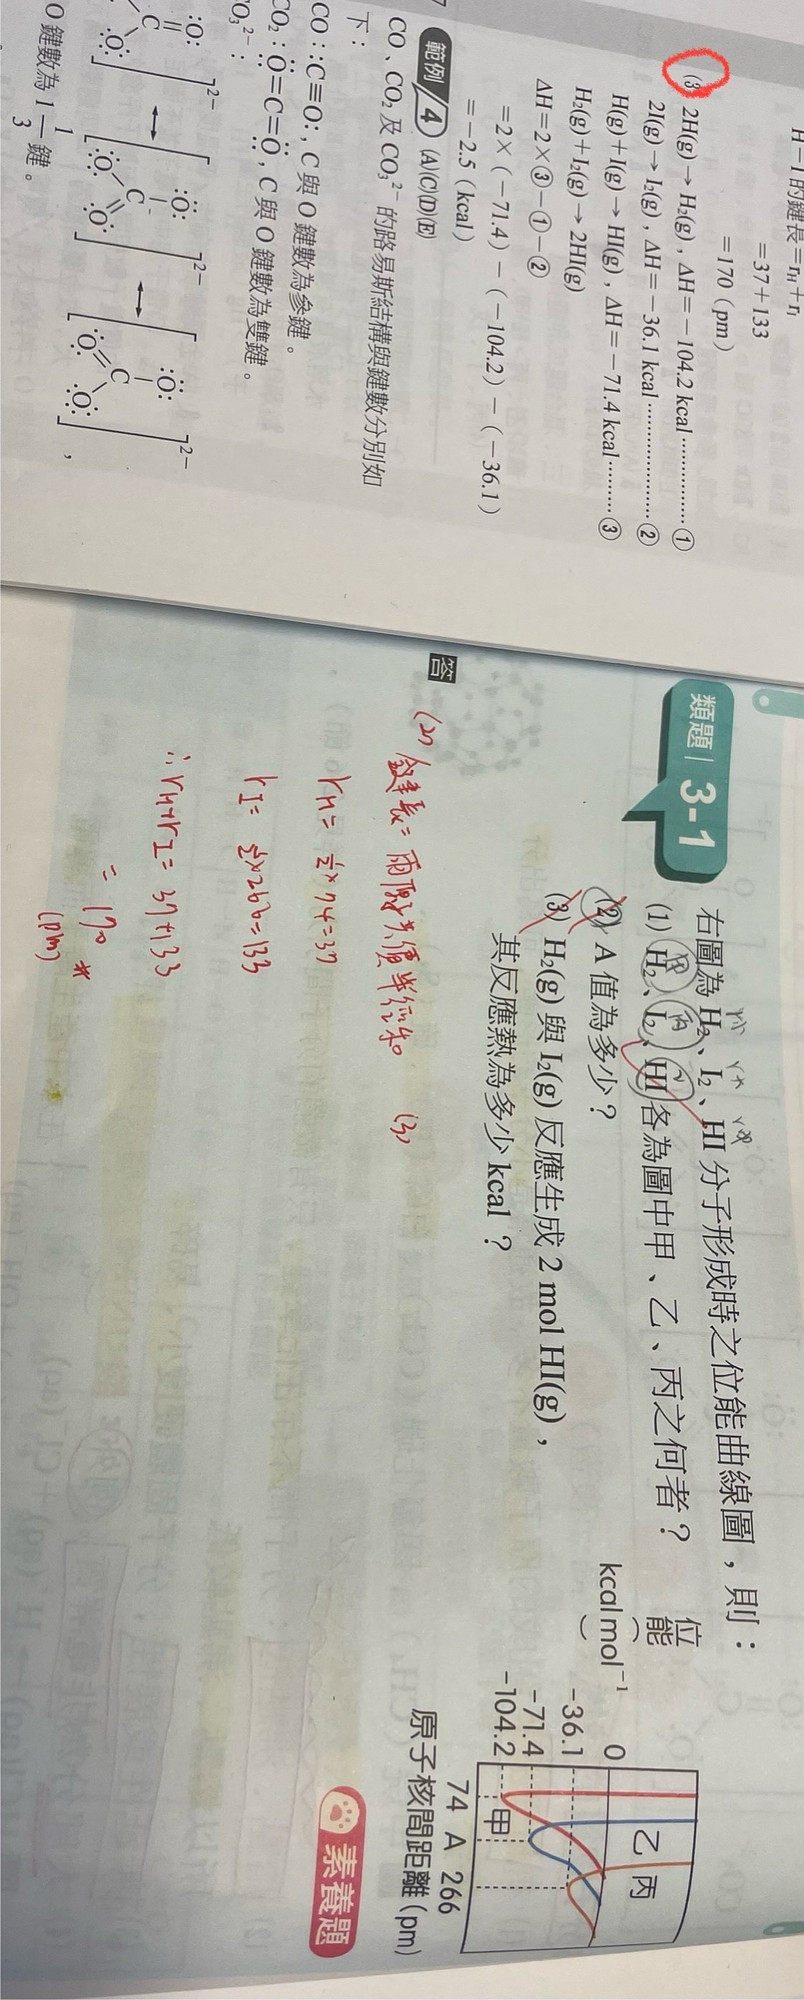 H－I 的鍵長＝rH＋rI
＝37＋133
＝170（pm）
(3) 2H(g)→H₂(g)，ΔH＝－104.2 kcal…………①
2I(g)→I₂(g)，ΔH＝－36.1 kcal………………②
H(g)＋I(g)→HI(g)，ΔH＝－71.4 kcal………③
H₂(g)＋I₂(g)→2HI(g)
ΔH＝2×③－①－②
＝2×（－71.4）－（－104.2）－（－36.1）
＝－2.5（kcal）
範例 4 (A)(C)(D)(E)
CO、CO₂ 及 CO₃²⁻ 的路易斯結構與鍵數分別如
下：
CO：:C≡O:，C 與 O 鍵數為參鍵。
CO₂：Ö=C=Ö，C 與 O 鍵數為雙鍵。
CO₃²⁻：
O 鍵數為 1 1/3 鍵。
類題 3-1
右圖為 H₂、I₂、HI 分子形成時之位能曲線圖，則：
(1) H₂、I₂、HI 各為圖中甲、乙、丙之何者？
(2) A 值為多少？
(3) H₂(g) 與 I₂(g) 反應生成 2 mol HI(g)，
其反應熱為多少 kcal？
位能
(kcal mol⁻¹)
0
-36.1
-71.4
-104.2
甲
乙
丙
74 A 266
原子核間距離(pm)
素養題
答
(2) 鍵長=兩原子共價半徑和
rH = ½×74=37
rI = ½×266=133
∴ rH+rI = 37+133
= 170 *
(pm)
(3)